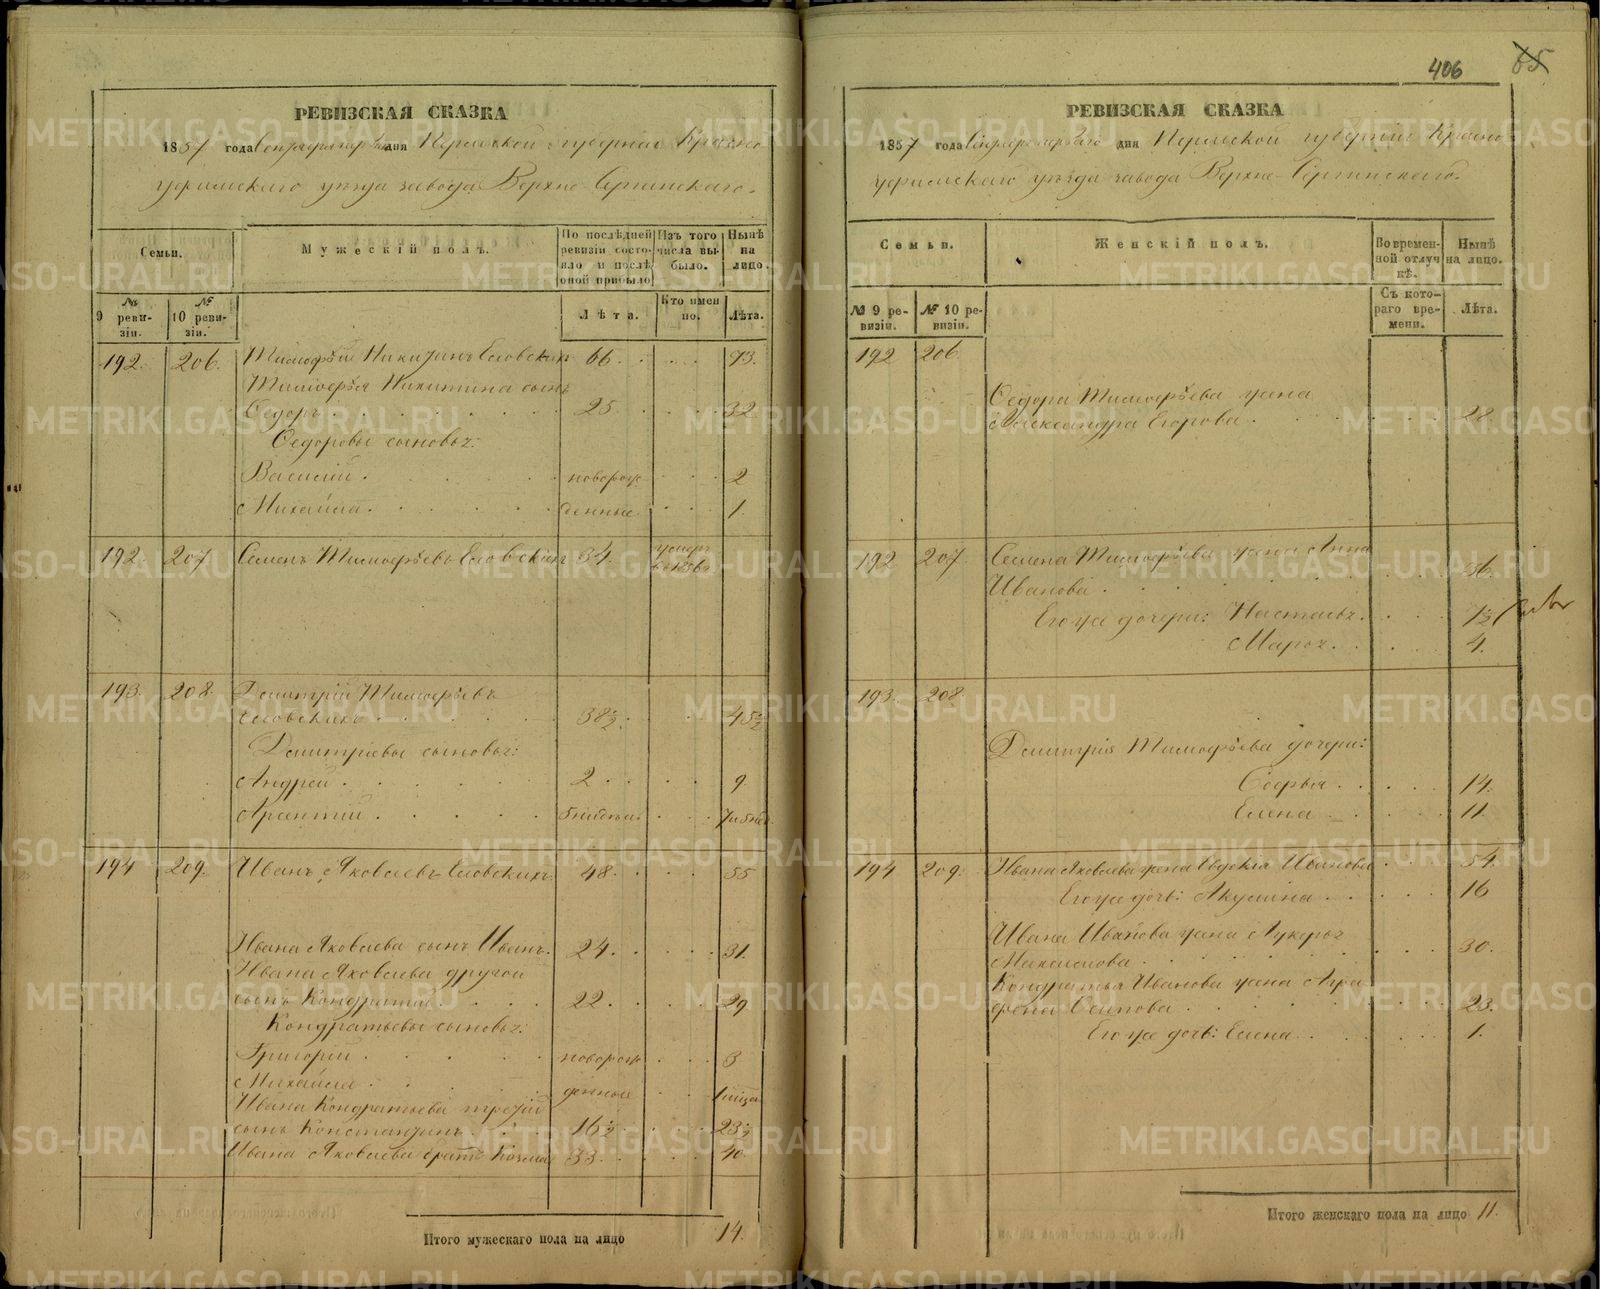 406 65
РЕВИЗСКАЯ СКАЗКА
1857 года Сентября первого дня Пермской губернии Красно-
уфимскаго уѣзда завода Верхне-Сергинскаго.
Семьи.
Мужескій полъ.
По послѣдней ревизіи состояло и послѣ оной прибыло
Изъ того числа выбыло.
Нынѣ на лицо.
№ 9 ревизіи.
№ 10 ревизіи.
Лѣта.
Кто именно.
Лѣта.
192. 206. Тимофѣй Никитинъ Еловскихъ 66. 73.
Тимофѣя Никитина сынъ
Ѳедоръ 25. 32.
Ѳедоровы сыновья:
Василій новорож- 2
Михайла денные 1.
192. 207 Семенъ Тимофѣевъ Еловскихъ 34. умеръ
193. 208. Дмитрій Тимофѣевъ
Еловскихъ 38½ 45½
Дмитріевы сыновья:
Андрей 2 9
194 209. Иванъ Яковлевъ Еловскихъ 48. 55
Ивана Яковлева сынъ Иванъ. 24. 31.
Ивана Яковлева другой
сынъ Кондратій 22. 29
Кондратьевы сыновья:
Григорій новорож- 3
Михайла денные
Ивана Кондратьева третій
сынъ Константинъ 16½ 23½
Ивана Яковлева братъ Козма 33. 40
Итого мужескаго пола на лицо 14.
РЕВИЗСКАЯ СКАЗКА
1857 года Сентября первого дня Пермской губерніи Красно-
уфимскаго уѣзда завода Верхне-Сергинскаго.
Семьи.
Женскій полъ.
Во временной отлучкѣ.
Нынѣ на лицо.
№ 9 ревизіи.
№ 10 ревизіи.
Съ котораго времени.
Лѣта.
192 206
Ѳедора Тимофѣева жена
Александра Егорова 28.
192 207 Семена Тимофѣева жена Анна
Иванова 36.
Его же дочери: Настасья
Марья 4.
193. 208.
Дмитрія Тимофѣева дочери:
Софья 14.
Елена 11.
194 209. Ивана Яковлева жена Авдотья Иванова 54.
Его же дочь: Акулина 16
Ивана Иванова жена Лукерья
Максимова 30.
Кондратья Иванова жена Агра-
фена Осипова 23.
Его же дочь: Елена 1.
Итого женскаго пола на лицо 11.
METRIKI.GASO-URAL.RU